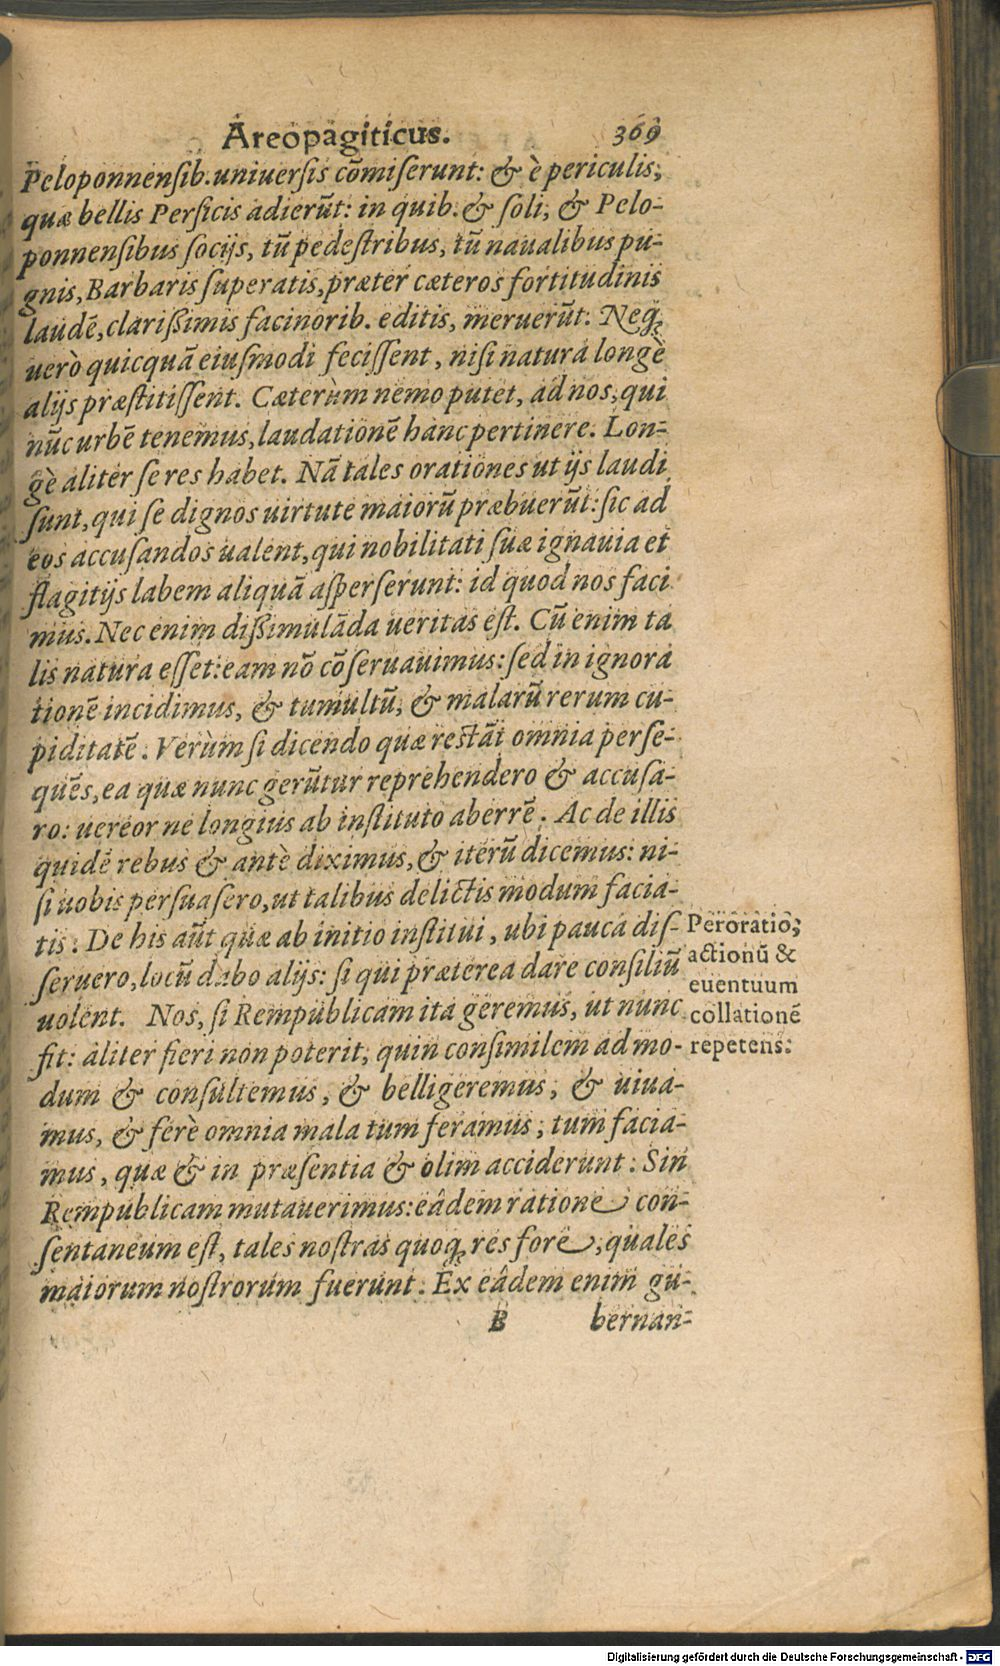 Areopagiticus. 369
Peloponnensib. uniuersis cõmiserunt: & è periculis,
quæ bellis Persicis adierũt: in quib. & soli, & Pelo-
ponnensibus socijs, tũ pedestribus, tũ naualibus pu-
gnis, Barbaris superatis, præter cæteros fortitudinis
laudẽ, clarißimis facinorib. editis, meruerũt. Neq;
uerò quicquã eiusmodi fecissent, nisi natura longè
alijs præstitissent. Cæterùm nemo putet, ad nos, qui
nũc urbẽ tenemus, laudationẽ hanc pertinere. Lon-
gè aliter se res habet. Nã tales orationes ut ijs laudi
sunt, qui se dignos uirtute maiorũ præbuerũt: sic ad
eos accusandos ualent, qui nobilitati suæ ignauia et
flagitijs labem aliquã asperserunt: id quod nos faci
mus. Nec enim dißimulãda ueritas est. Cũ enim ta
lis natura esset: eam nõ cõseruauimus: sed in ignora
tionẽ incidimus, & tumultũ, & malarũ rerum cu-
piditatẽ. Verùm si dicendo quæ restãt omnia perse-
quẽs, ea quæ nunc gerũtur reprehendero & accusa-
ro: uereor ne longius ab instituto aberrẽ. Ac de illis
quidẽ rebus & antè diximus, & iterũ dicemus: ni-
si uobis persuasero, ut talibus delictis modum facia-
tis. De his aũt quæ ab initio institui, ubi pauca dis-
seruero, locũ dabo alijs: si qui præterea dare consiliũ
uolent. Nos, si Rempublicam ita geremus, ut nunc
fit: aliter fieri non poterit, quin consimilem ad mo-
dum & consultemus, & belligeremus, & uiua-
mus, & ferè omnia mala tum feramus, tum facia-
mus, quæ & in præsentia & olim acciderunt: Sin
Rempublicam mutauerimus: eâdem ratione con-
sentaneum est, tales nostras quoq; res fore, quales
maiorum nostrorum fuerunt. Ex eâdem enim gu-
B bernan-
Peroratio,
actionũ &
euentuum
collationẽ
repetens.
Digitalisierung gefördert durch die Deutsche Forschungsgemeinschaft - DFG